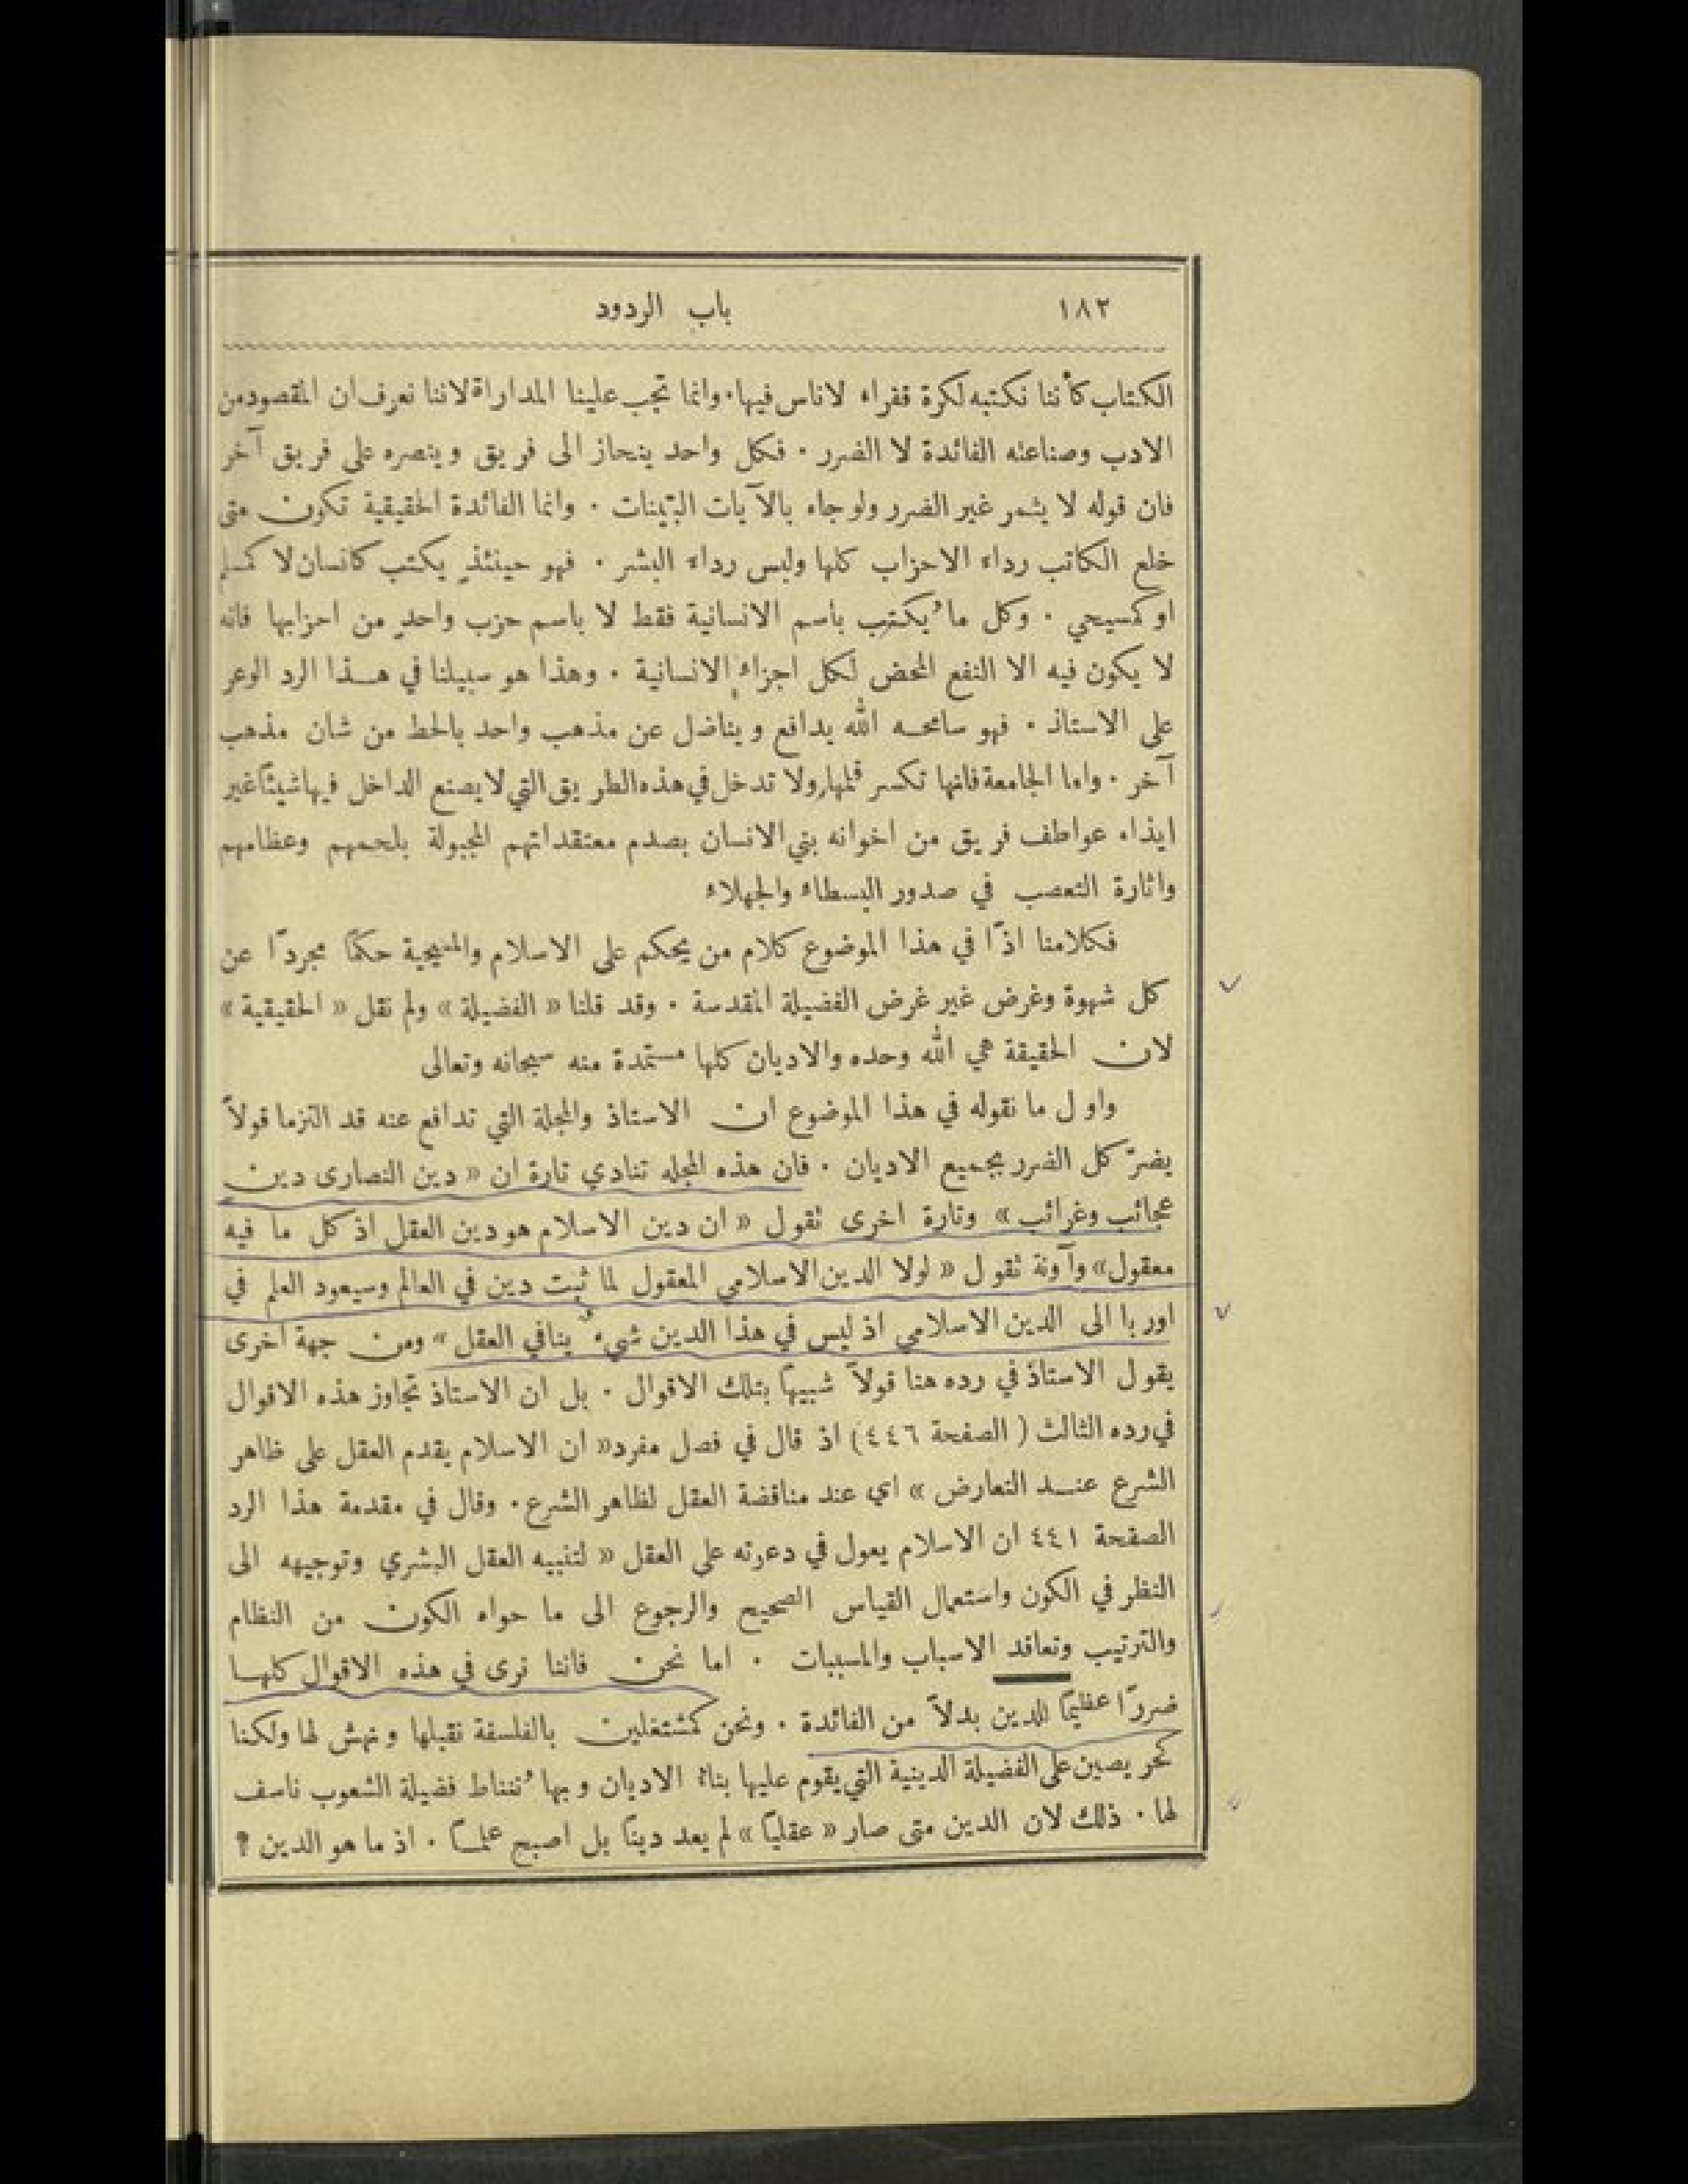 ١٨٢ باب الردود
الكتاب كأننا نكتبه لكرة قفراء لا ناس فيها . وانما تجب علينا المداراة لاننا نعرف ان المقصود من
الادب وصناعته الفائدة لا الضرر . فكل واحد ينحاز الى فريق وينصره على فريق آخر
فان قوله لا يثمر غير الضرر ولو جاء بالآيات البيّنات . وانما الفائدة الحقيقية تكون متى
خلع الكاتب رداء الاحزاب كلها ولبس رداء البشر . فهو حينئذٍ يكتب كانسان لا كمسلم
او كمسيحي . وكل ما يُكتب باسم الانسانية فقط لا باسم حزب واحدٍ من احزابها فانه
لا يكون فيه الا النفع المحض لكل اجزاء الانسانية . وهذا هو سبيلنا في هـذا الرد الوعر
على الاستاذ . فهو سامحـه الله يدافع ويناضل عن مذهب واحد بالحط من شان مذهب
آخر . واما الجامعة فانها تكسر قلمها ولا تدخل في هذه الطريق التي لا يصنع الداخل فيها شيئًا غير
ايذاء عواطف فريق من اخوانه بني الانسان بصدم معتقداتهم المجبولة بلحمهم وعظامهم
واثارة التعصب في صدور البسطاء والجهلاء
فكلامنا اذًا في هذا الموضوع كلام من يحكم على الاسلام والمسيحية حكمًا مجردًا عن
كل شهوة وغرض غير غرض الفضيلة المقدسة . وقد قلنا « الفضيلة » ولم نقل « الحقيقية »
لان الحقيقة هي الله وحده والاديان كلها مستمدة منه سبحانه وتعالى
واول ما نقوله في هذا الموضوع ان الاستاذ والمجلة التي تدافع عنه قد التزما قولاً
يضرّ كل الضرر بجميع الاديان . فان هذه المجله تنادي تارة ان « دين النصارى دين
عجائب وغرائب » وتارة اخرى تقول « ان دين الاسلام هو دين العقل اذ كل ما فيه
معقول » وآونة تقول « لولا الدين الاسلامي المعقول لما ثبت دين في العالم وسيعود العلم في
اوربا الى الدين الاسلامي اذ ليس في هذا الدين شيءٌ ينافي العقل » ومن جهة اخرى
يقول الاستاذ في رده هنا قولاً شبيهًا بتلك الاقوال . بل ان الاستاذ تجاوز هذه الاقوال
في رده الثالث ( الصفحة ٤٤٦ ) اذ قال في فصل مفرد « ان الاسلام يقدم العقل على ظاهر
الشرع عنـد التعارض » اي عند مناقضة العقل لظاهر الشرع . وقال في مقدمة هذا الرد
الصفحة ٤٤١ ان الاسلام يعول في دعوته على العقل « لتنبيه العقل البشري وتوجيهه الى
النظر في الكون واستعمال القياس الصحيح والرجوع الى ما حواه الكون من النظام
والترتيب وتعاقد الاسباب والمسببات . اما نحن فاننا نرى في هذه الاقوال كلهـا
ضررًا عظيمًا للدين بدلاً من الفائدة . ونحن كمشتغلين بالفلسفة نقبلها ونهش لها ولكنا
كحريصين على الفضيلة الدينية التي يقوم عليها بناء الاديان وبها تُناط فضيلة الشعوب ناسف
لها . ذلك لان الدين متى صار « عقليًا » لم يعد دينًا بل اصبح علمـًا . اذ ما هو الدين ؟